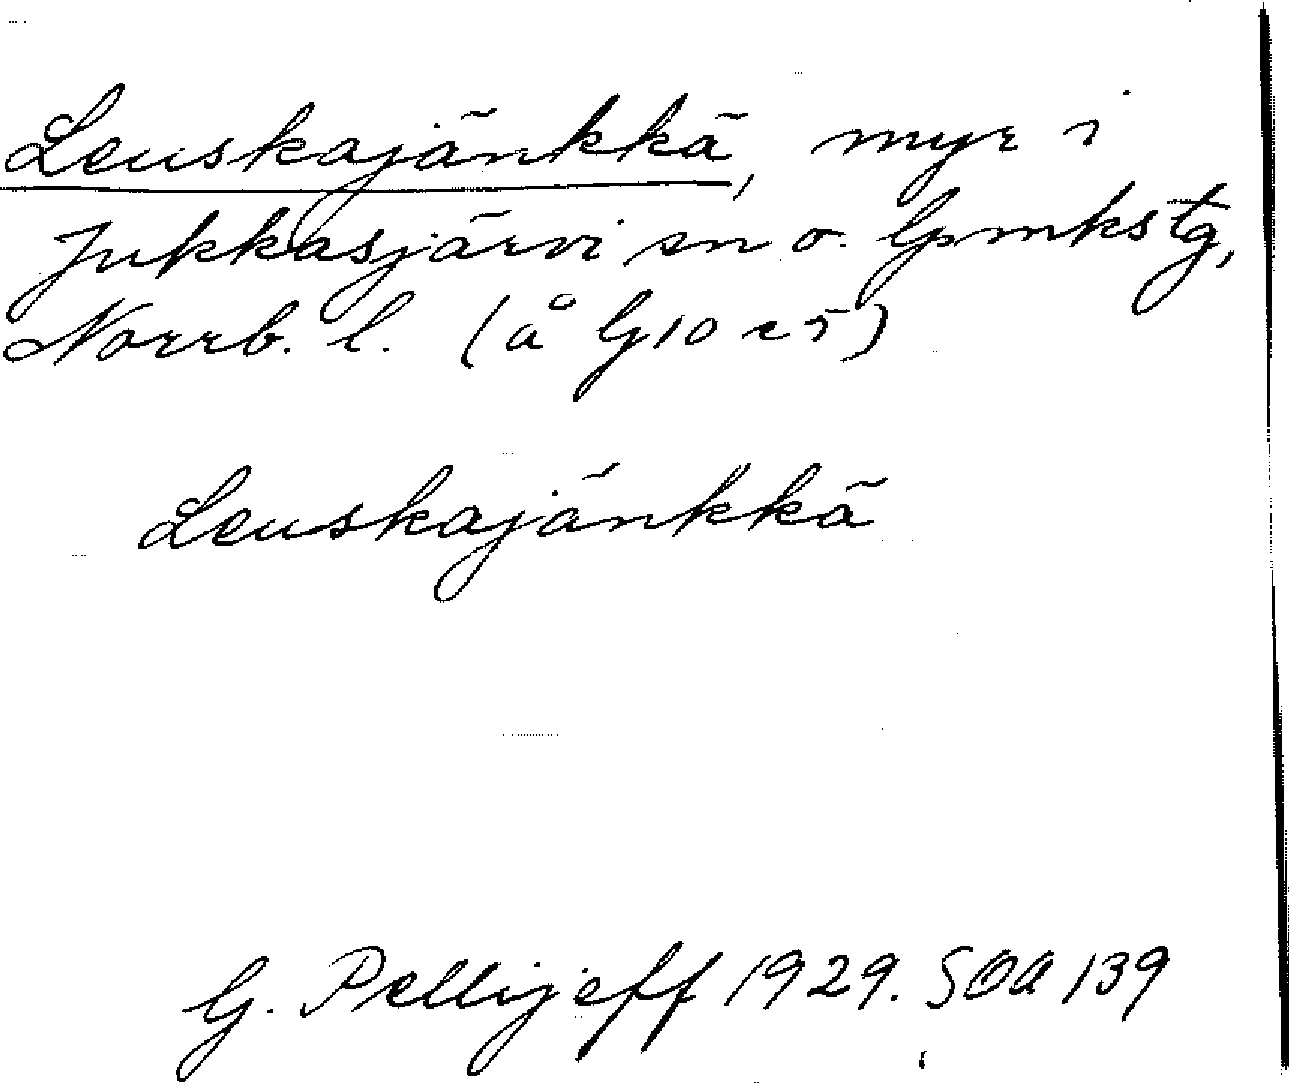 Leuskajänkkä, myr i
Jukkasjärvi sn o. Gmkstg,
Norrb. l. (å G10 c5)
Leuskajänkkä
G. Pellijeff 1929. SOA 139